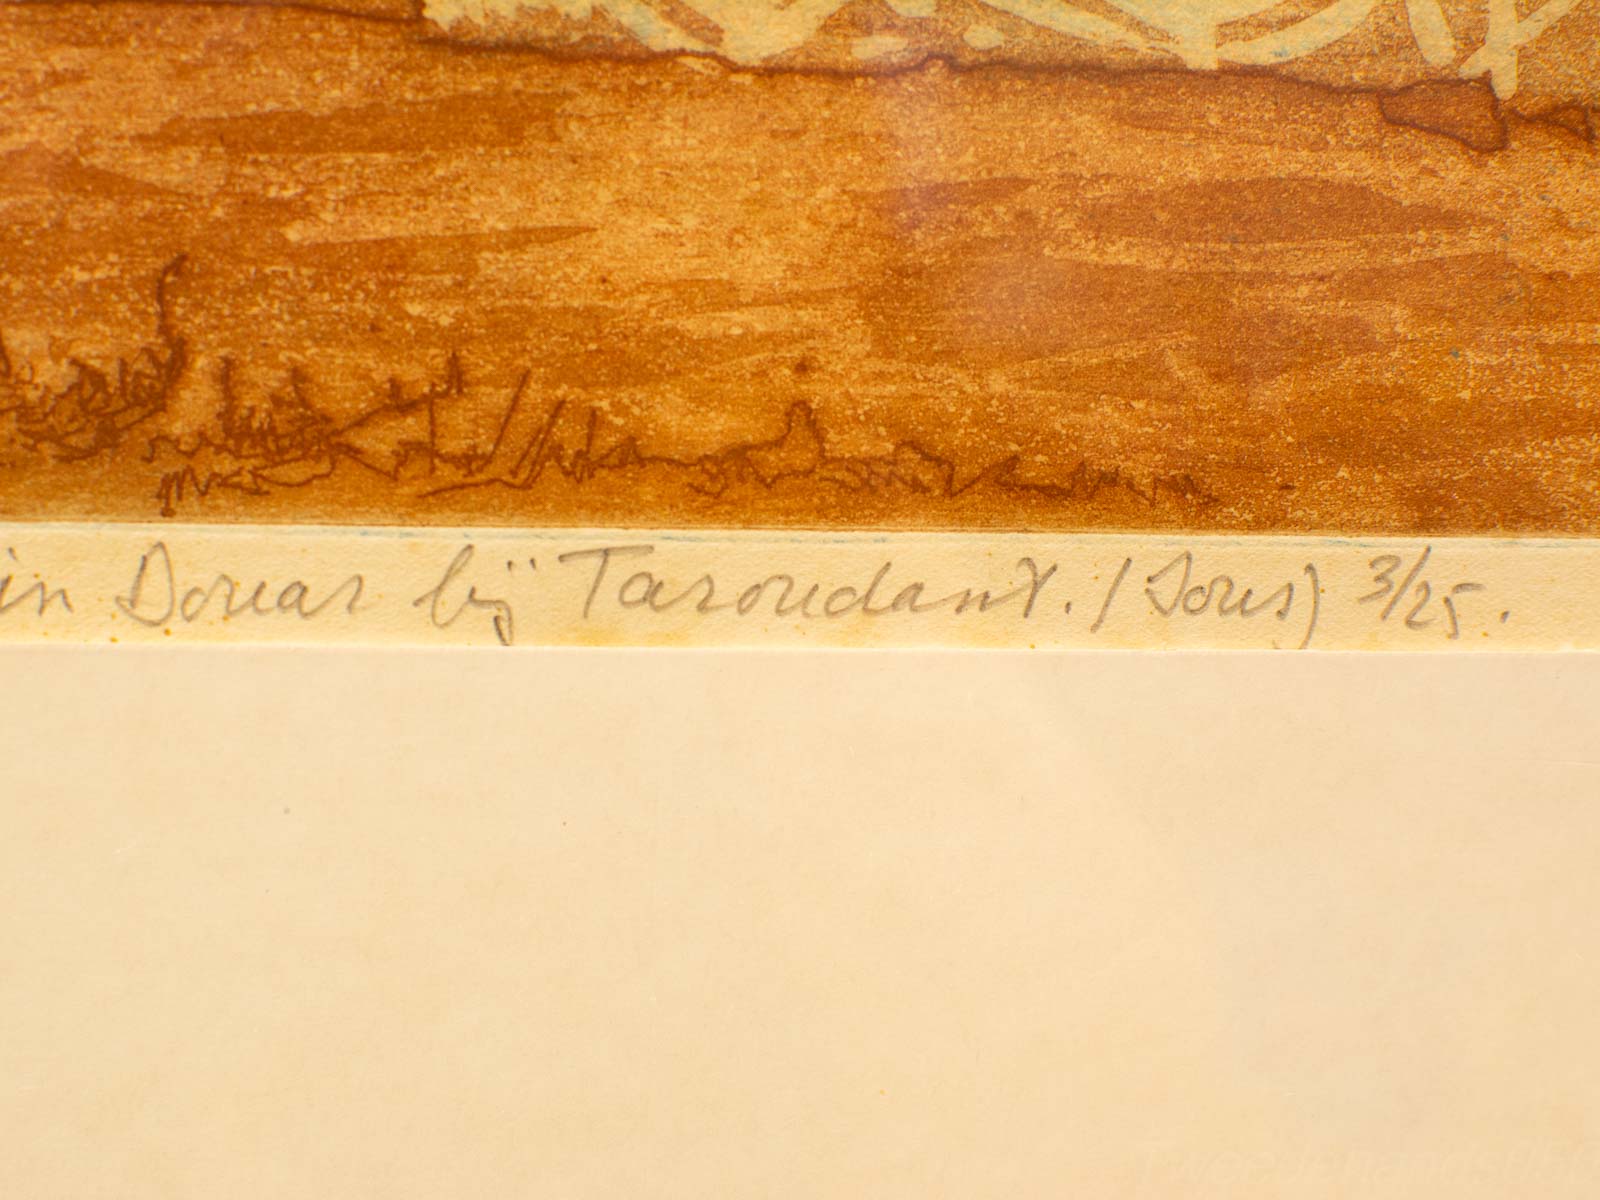 in Douar bij Taroudant. (Sous) 3/25.